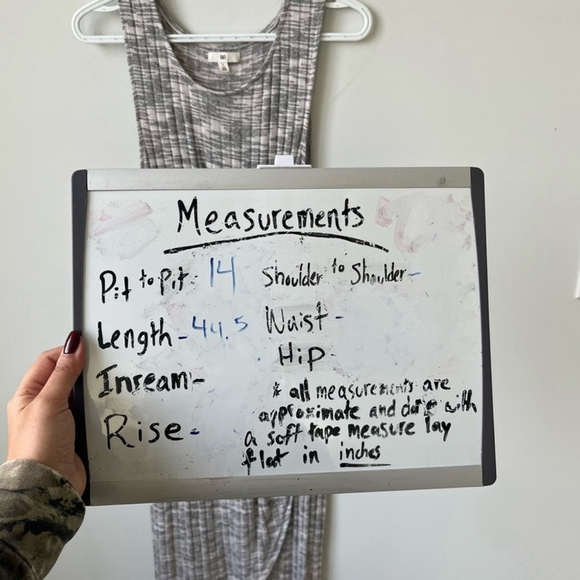 Measurements
Pit to Pit - 14 Shoulder to Shoulder -
Length - 44.5 Waist -
Inseam - Hip -
Rise -
* all measurements are
approximate and done with
a soft tape measure lay
flat in inches